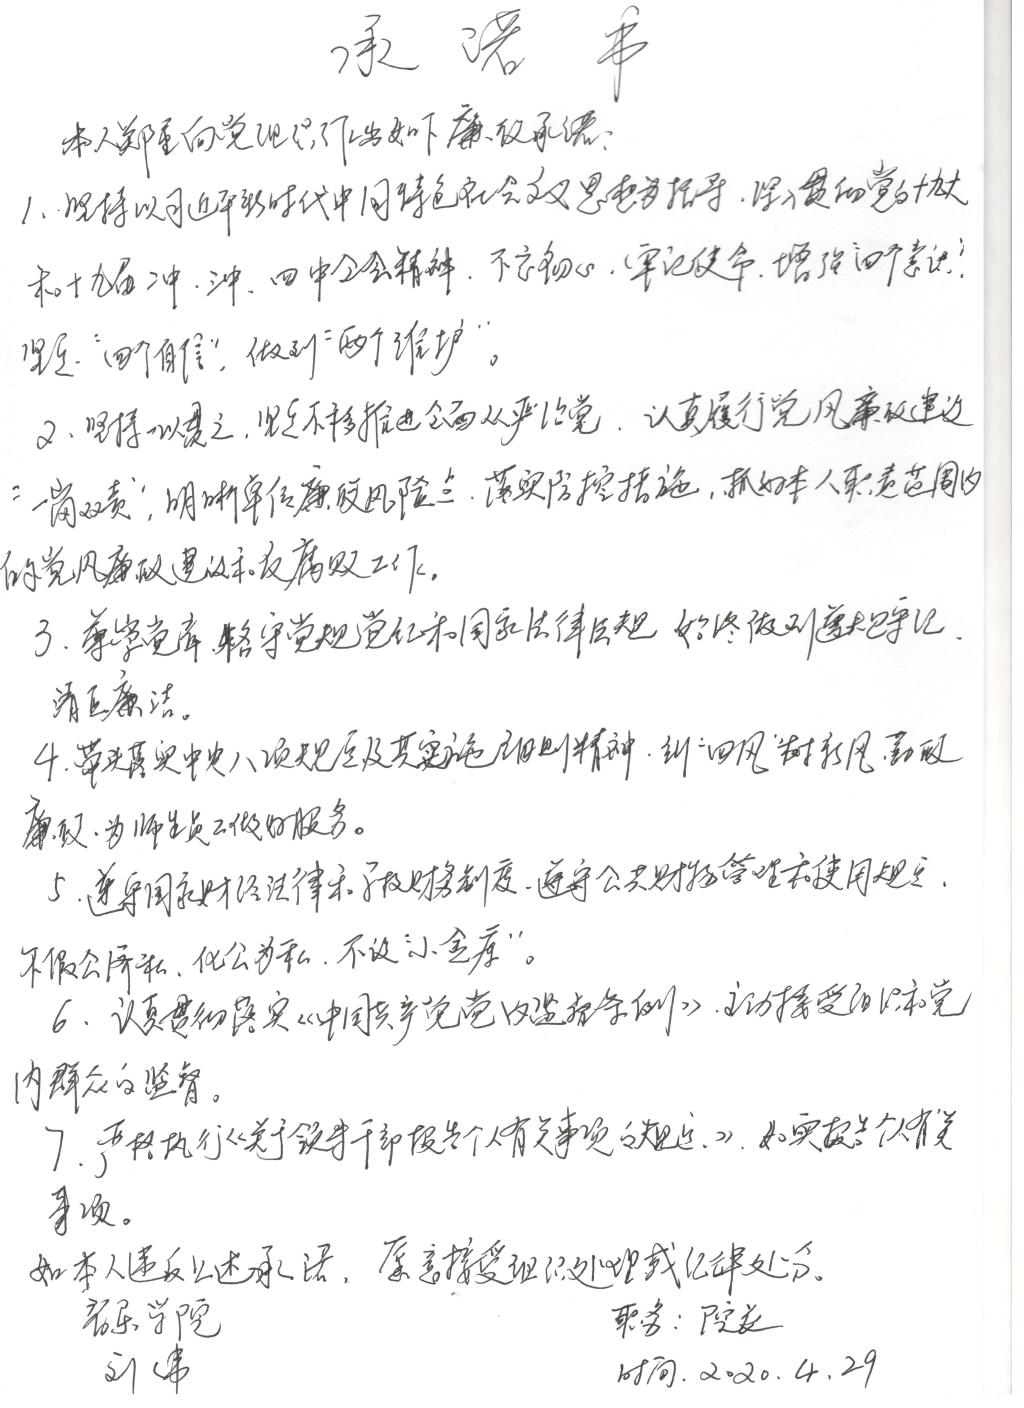 承诺书
本人郑重向党组织作出如下廉政承诺:
1、坚持以习近平新时代中国特色社会主义思想为指导、深入贯彻党的十九大
和十九届二中、三中、四中全会精神、不忘初心、牢记使命、增强"四个意识"、
坚定"四个自信"、做到"两个维护"。
2、坚持以贯之、坚定不移推进全面从严治党、认真履行党风廉政建设
"一岗双责"、明晰单位廉政风险点、落实防控措施、抓好本人职责范围内
的党风廉政建设和反腐败工作。
3、尊崇党章、恪守党规党纪和国家法律法规 始终做到遵规守纪、
清正廉洁。
4、带头落实中央八项规定及其实施细则精神、纠"四风"树新风、勤政
廉政、为师生员工做好服务。
5、遵守国家财经法律和学校财务制度、遵守公共财物管理和使用规定、
不假公济私、化公为私、不设"小金库"。
6、认真贯彻落实《中国共产党党内监督条例》、主动接受组织和党
内群众的监督。
7、严格执行《关于领导干部报告个人有关事项的规定》、如实报告个人有关
事项。
如本人违反上述承诺、愿意接受组织处理或纪律处分。
音乐学院 职务:院长
刘伟 时间、2020.4.29